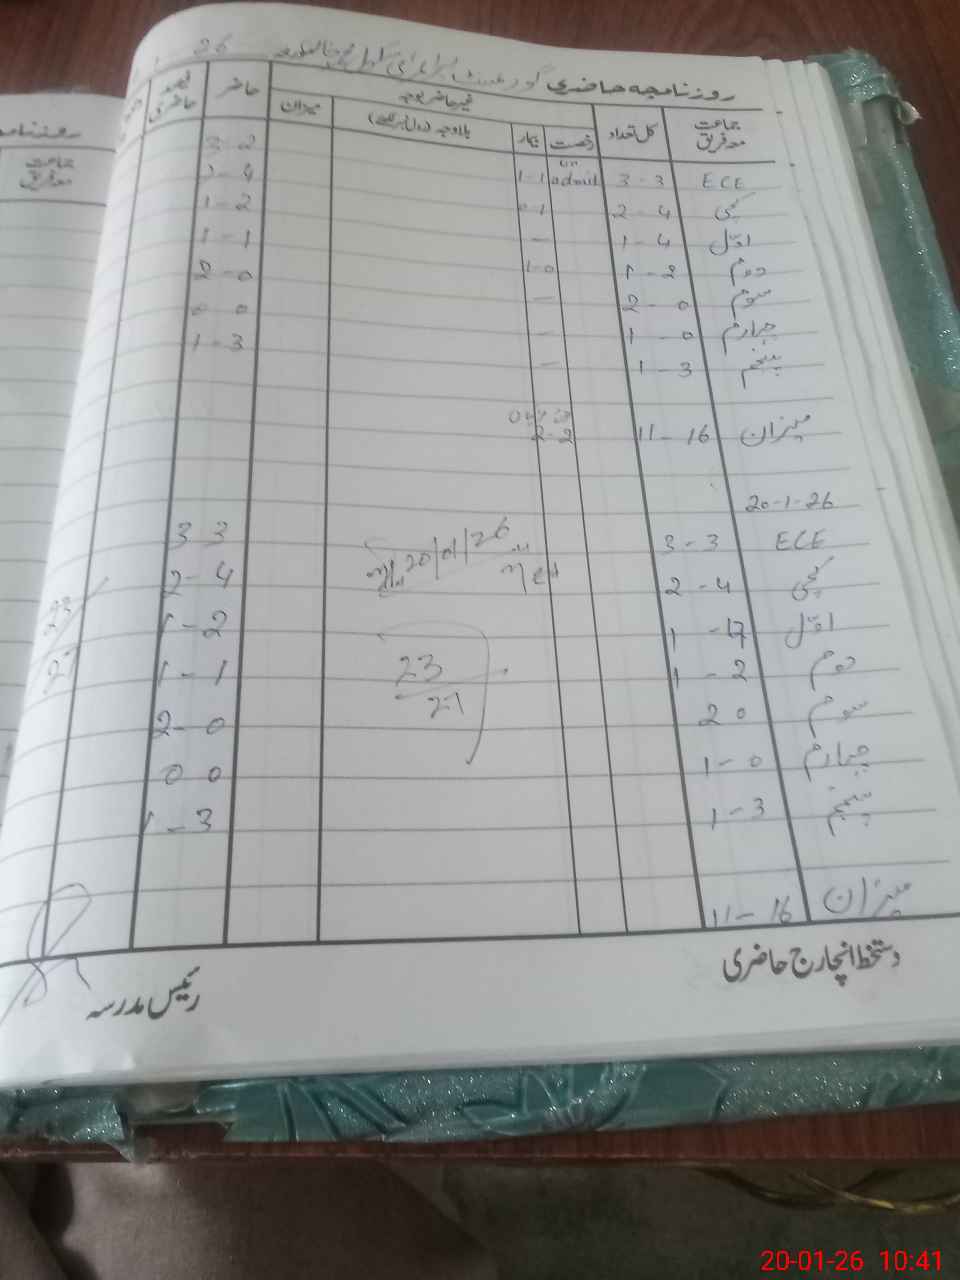 روزنامچہ حاضری گورنمنٹ پرائمری سکول 26
جماعت معہ فریق کل تعداد غیر حاضر بوجہ میزان حاضر فیصد حاضری
رخصت بیمار بلاوجہ
3-2
ECE 3-3 un admit 1-1 1-4
کچی 2-4 0-1 1-2
اول 1-4 - 1-1
دوم 1-2 1-0 2-0
سوم 2-0 - 0 0
چہارم 1-0 - 1-3
پنجم 1-3 -
میزان 11-16 2-2
20-1-26
ECE 3-3 20/01/26 3 3
کچی 2-4 2-4
اول 1-17 1-2 23
دوم 1-2 23 1-1 27
سوم 2 0 27 2-0
چہارم 1-0 0 0
پنجم 1-3 1-3
میزان 11-16
دستخط انچارج حاضری
رئیس مدرسہ
روزنامچہ
جماعت معہ فریق
20-01-26 10:41